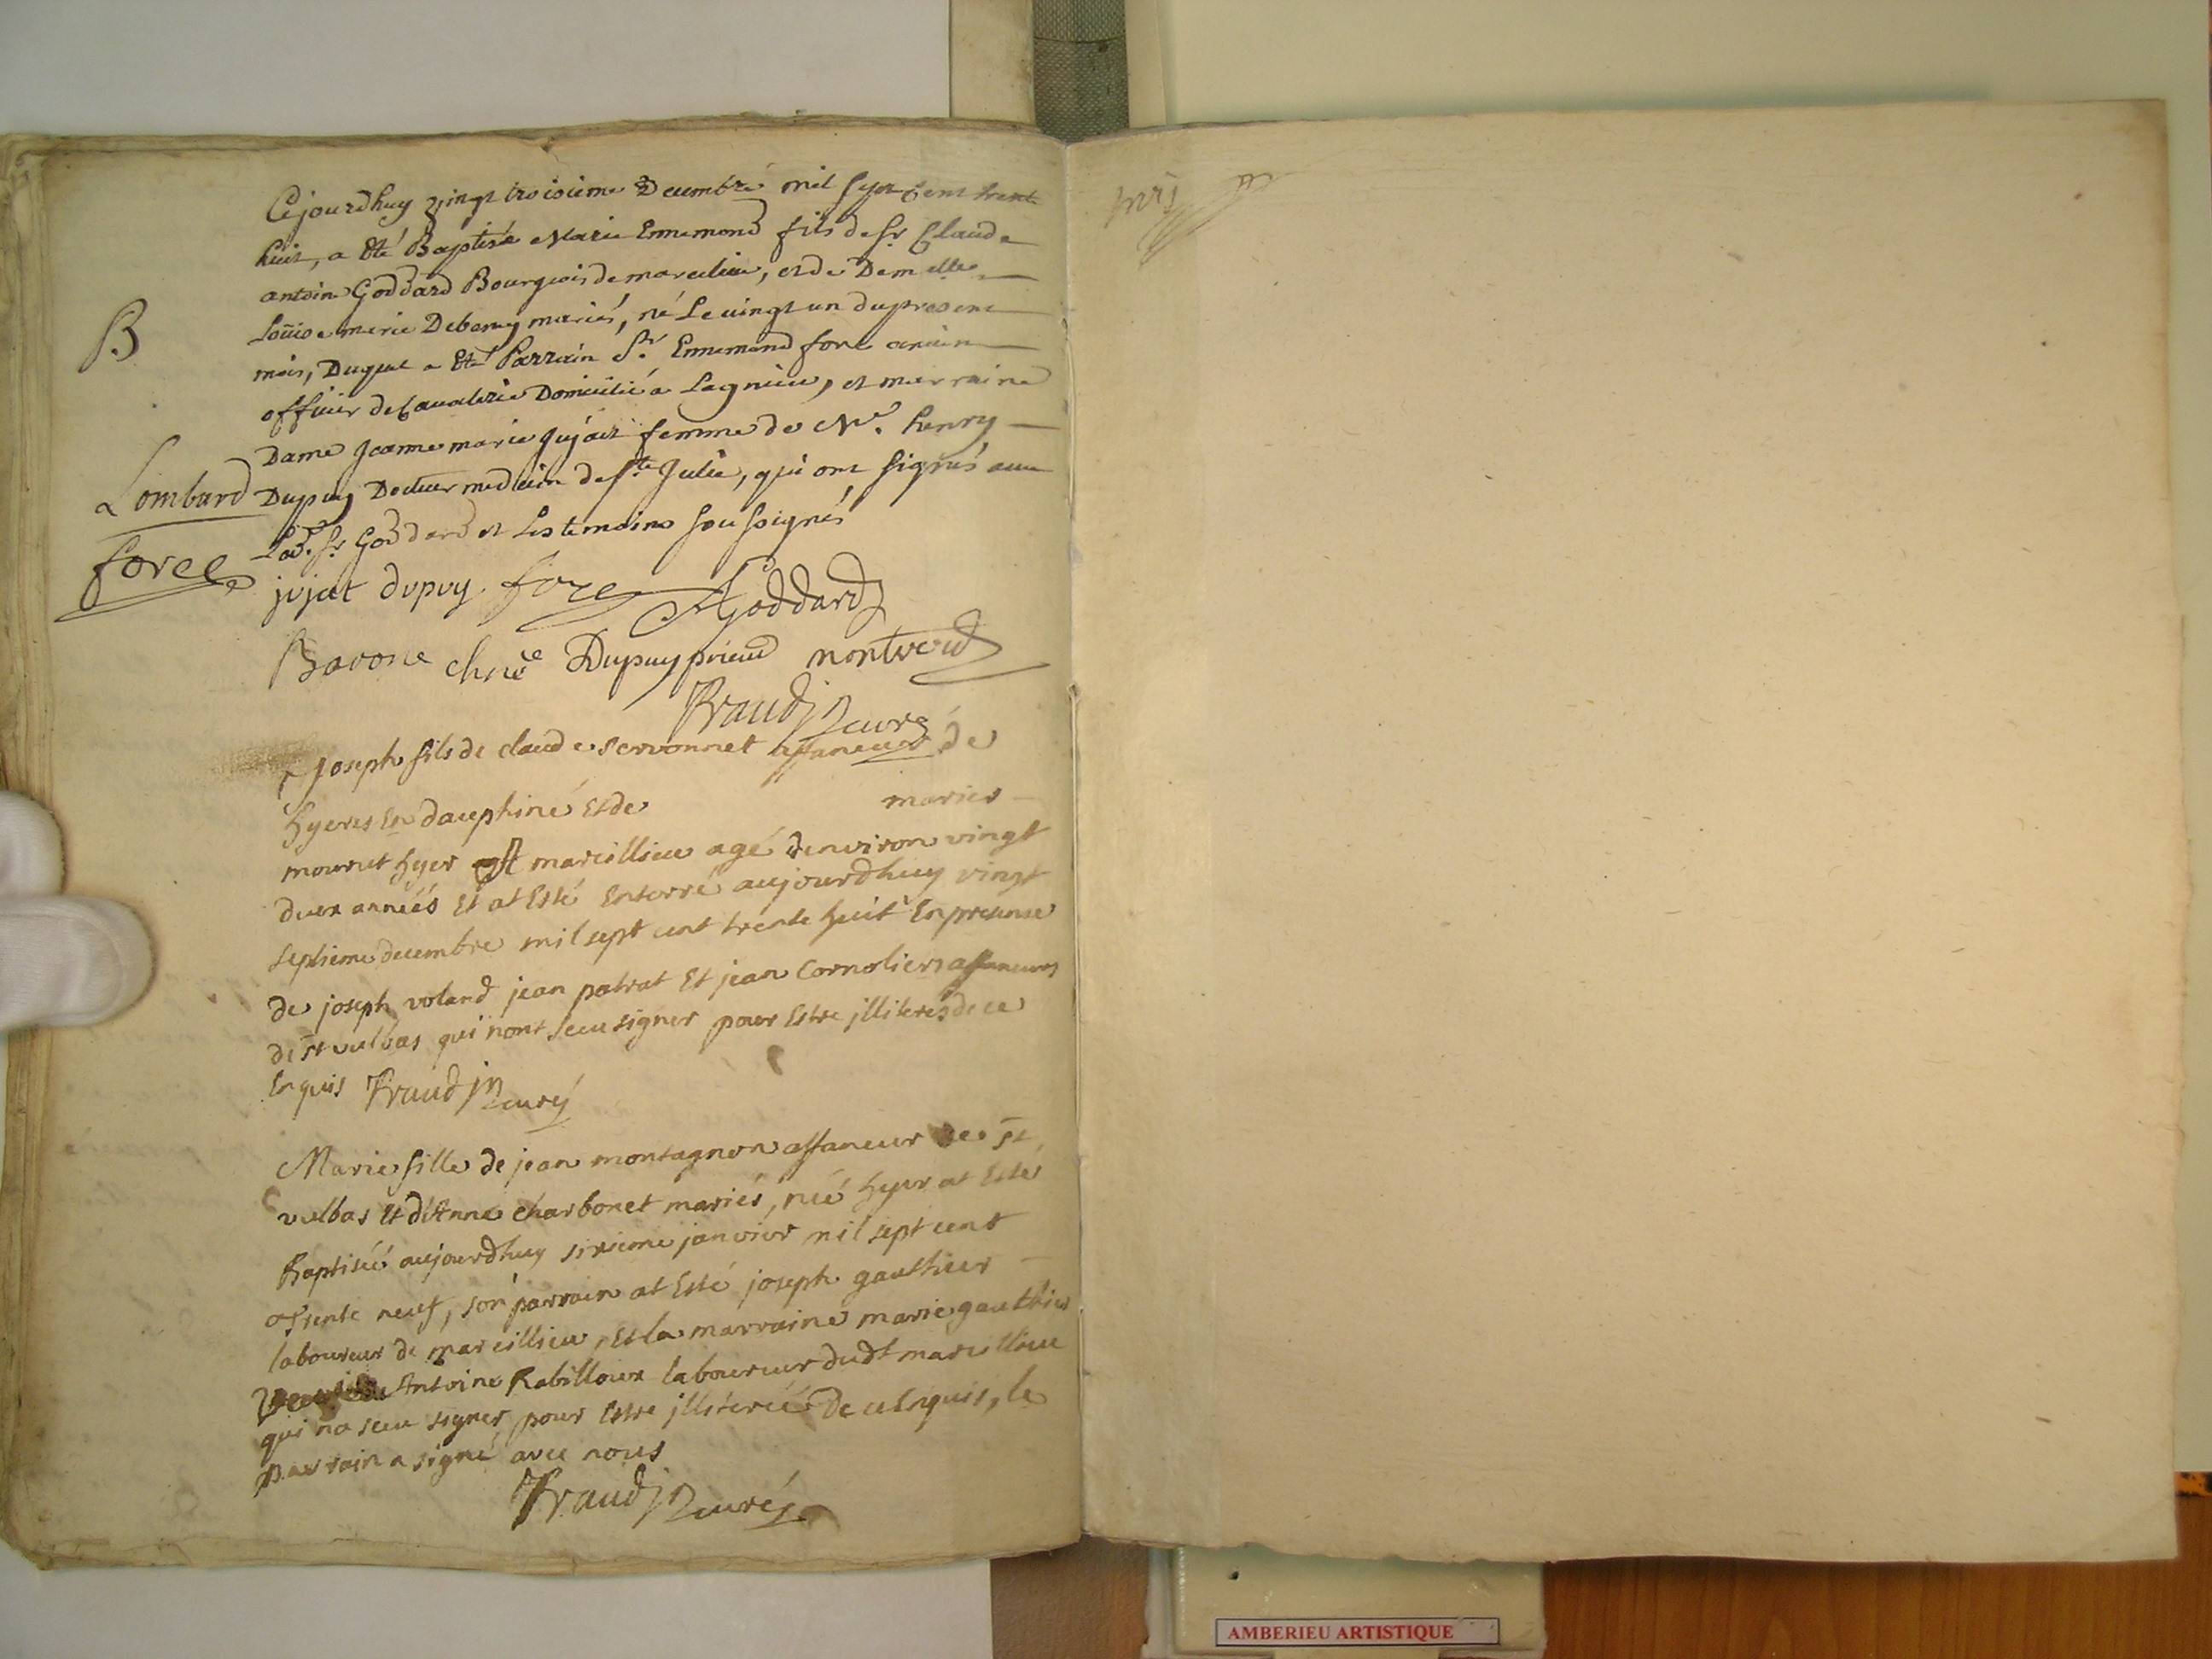 Cejourdhuy vingt troisieme Decembre mil sept cent trente
huit, a Eté Baptisé Marie Ennemond fils de Sr Claude
antoine Goddard Bourgeois de marcilieu, et de Demlle
Loüise marie Debeney mariés, né Le vingt un du present
mois, Duquel a Eté Parrain Sr. Ennemond fore ancien
officier de Cavalerie Domicilié a Lagnieu, et marraine
B
Dame Jeanne marie Jujat femme de Mr. henry
Dupuy Docteur medecin de Ste Julie, qui ont signés avec
Led. Sr Goddard et Les temoins soussignés
Lombard
foree
jujat dupuy. fore Goddard
Dupuy prieur
curé
Joseph fils de claude servonnet affaneur de
hyeres En dauphiné Et de maries
mourut hyer marcillieu agé denviron vingt
deux années Et at Esté Enterré aujourdhuy vingt
septieme decembre mil sept cent trente huit En presence
de joseph voland jean patrat Et jean Cornolier affaneurs
de st vulbas qui nont sceu signer pour Estre illiterés de ce
Enquis curé
Marie fille de jean montagnon affaneur de st
vulbas Et d'Anne charbonet mariés, née hyer at Esté
Baptisée aujourdhuy sixieme janvier mil sept cent
trente neuf, son parrain at Esté joseph gauthier
laboureur de marcillieu, Et la marraine marie gauthier
Antoine Rabilloux laboureur dudt marcillieu
qui na sceu signer pour Estre illiterée de ce Enquis, le
parrain a signé avec nous
curé
AMBERIEU ARTISTIQUE